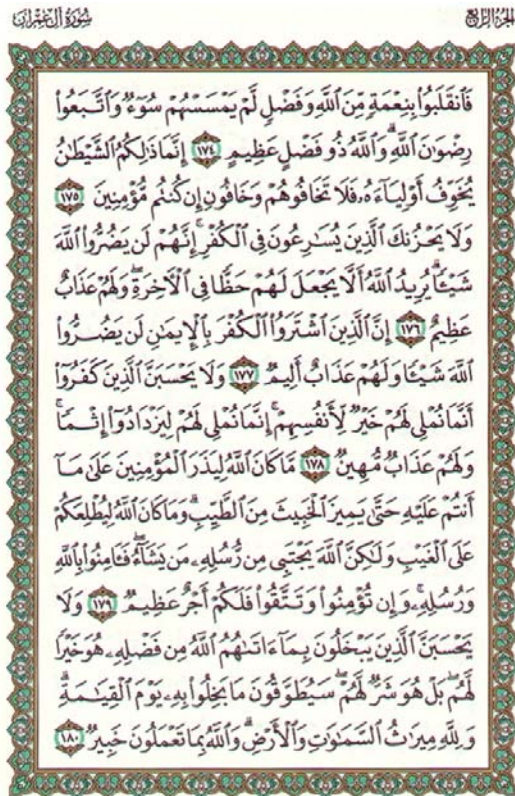 سُورَةُ آلِ عِمْرَانَ
الجُزْءُ الرَّابِعُ
فَٱنقَلَبُوا۟ بِنِعْمَةٍ مِّنَ ٱللَّهِ وَفَضْلٍ لَّمْ يَمْسَسْهُمْ سُوٓءٌ وَٱتَّبَعُوا۟
رِضْوَٰنَ ٱللَّهِ ۗ وَٱللَّهُ ذُو فَضْلٍ عَظِيمٍ ١٧٤ إِنَّمَا ذَٰلِكُمُ ٱلشَّيْطَٰنُ
يُخَوِّفُ أَوْلِيَآءَهُۥ فَلَا تَخَافُوهُمْ وَخَافُونِ إِن كُنتُم مُّؤْمِنِينَ ١٧٥
وَلَا يَحْزُنكَ ٱلَّذِينَ يُسَٰرِعُونَ فِى ٱلْكُفْرِ ۚ إِنَّهُمْ لَن يَضُرُّوا۟ ٱللَّهَ
شَيْـًٔا ۗ يُرِيدُ ٱللَّهُ أَلَّا يَجْعَلَ لَهُمْ حَظًّا فِى ٱلْـَٔاخِرَةِ ۖ وَلَهُمْ عَذَابٌ
عَظِيمٌ ١٧٦ إِنَّ ٱلَّذِينَ ٱشْتَرَوُا۟ ٱلْكُفْرَ بِٱلْإِيمَٰنِ لَن يَضُرُّوا۟
ٱللَّهَ شَيْـًٔا وَلَهُمْ عَذَابٌ أَلِيمٌ ١٧٧ وَلَا يَحْسَبَنَّ ٱلَّذِينَ كَفَرُوٓا۟
أَنَّمَا نُمْلِى لَهُمْ خَيْرٌ لِّأَنفُسِهِمْ ۚ إِنَّمَا نُمْلِى لَهُمْ لِيَزْدَادُوٓا۟ إِثْمًا ۚ
وَلَهُمْ عَذَابٌ مُّهِينٌ ١٧٨ مَّا كَانَ ٱللَّهُ لِيَذَرَ ٱلْمُؤْمِنِينَ عَلَىٰ مَآ
أَنتُمْ عَلَيْهِ حَتَّىٰ يَمِيزَ ٱلْخَبِيثَ مِنَ ٱلطَّيِّبِ ۗ وَمَا كَانَ ٱللَّهُ لِيُطْلِعَكُمْ
عَلَى ٱلْغَيْبِ وَلَٰكِنَّ ٱللَّهَ يَجْتَبِى مِن رُّسُلِهِۦ مَن يَشَآءُ ۖ فَـَٔامِنُوا۟ بِٱللَّهِ
وَرُسُلِهِۦ ۚ وَإِن تُؤْمِنُوا۟ وَتَتَّقُوا۟ فَلَكُمْ أَجْرٌ عَظِيمٌ ١٧٩ وَلَا
يَحْسَبَنَّ ٱلَّذِينَ يَبْخَلُونَ بِمَآ ءَاتَىٰهُمُ ٱللَّهُ مِن فَضْلِهِۦ هُوَ خَيْرًا
لَّهُم ۖ بَلْ هُوَ شَرٌّ لَّهُمْ ۖ سَيُطَوَّقُونَ مَا بَخِلُوا۟ بِهِۦ يَوْمَ ٱلْقِيَٰمَةِ ۗ
وَلِلَّهِ مِيرَٰثُ ٱلسَّمَٰوَٰتِ وَٱلْأَرْضِ ۗ وَٱللَّهُ بِمَا تَعْمَلُونَ خَبِيرٌ ١٨٠